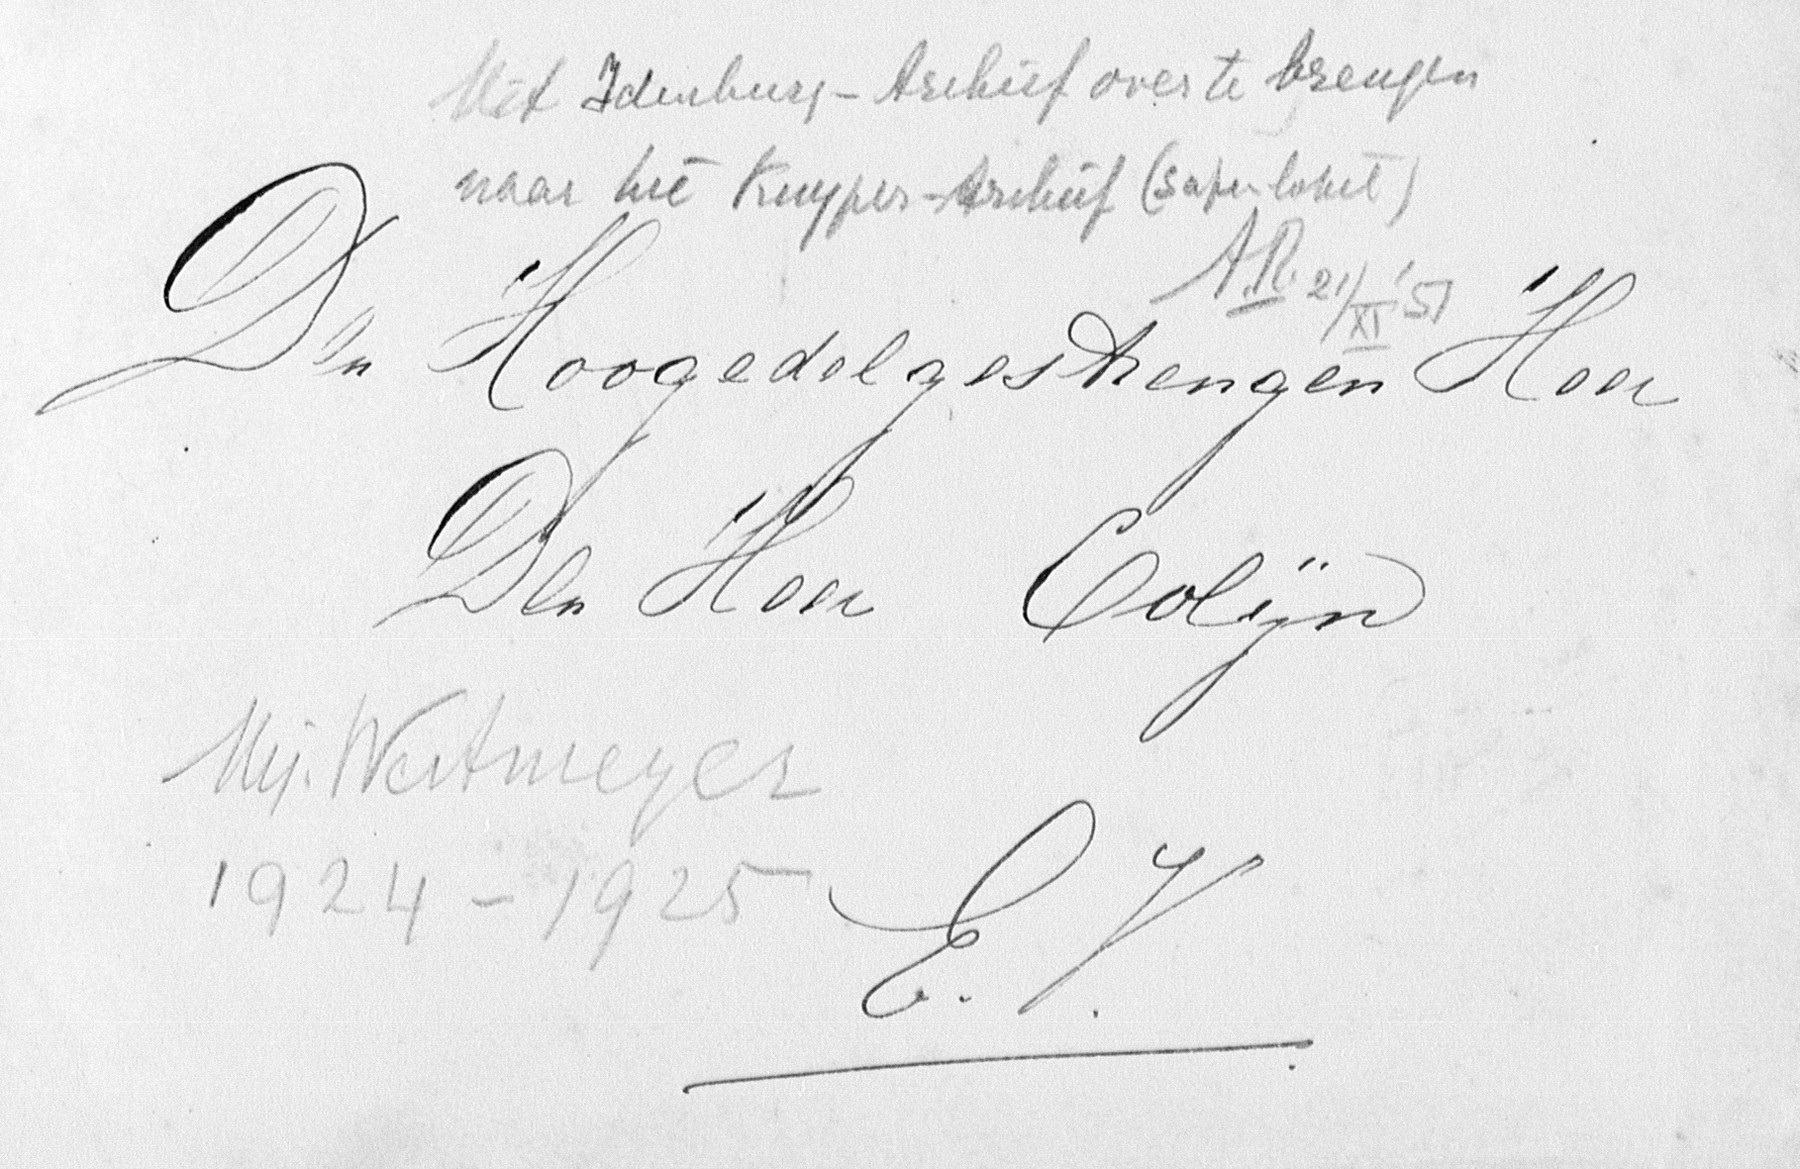 Uit Idenburg-Archief over te brengen
naar het Kuyper-Archief (safe-loket)
A.R. 21/XI '51
Den Hoogedelgestrengen Heer
Den Heer Colijn
Mij. Westmeyer
1924 - 1925
E.V.